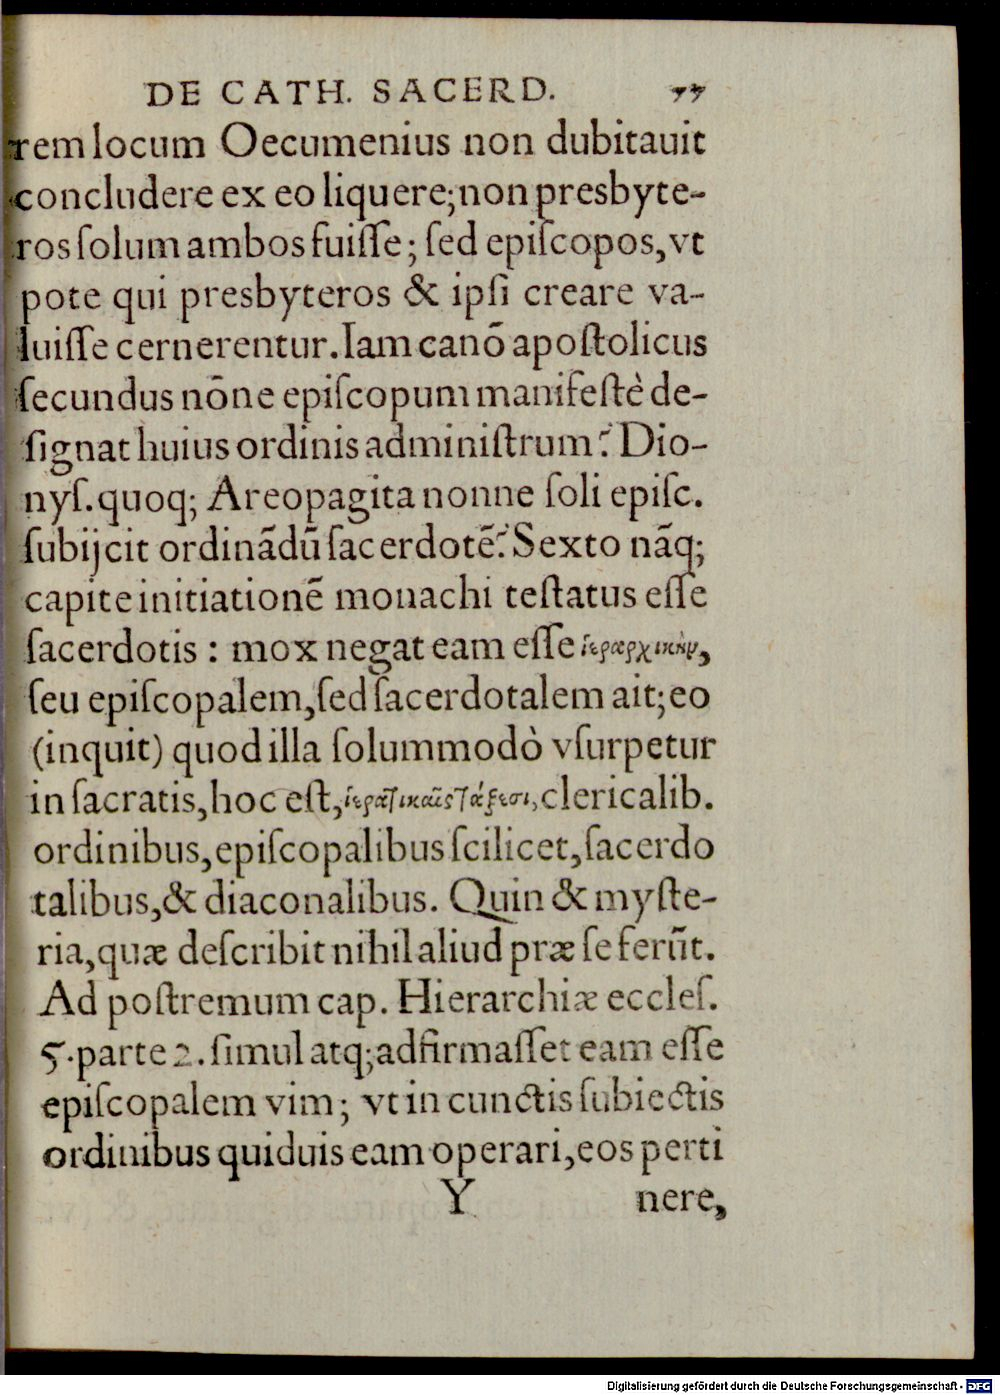 DE CATH. SACERD. 77
rem locum Oecumenius non dubitauit
concludere ex eo liquere; non presbyte-
ros ſolum ambos fuiſſe; ſed epiſcopos, vt
pote qui presbyteros & ipſi creare va-
luiſſe cernerentur. Iam canō apoſtolicus
ſecundus nōne epiſcopum manifeſtè de-
ſignat huius ordinis adminiſtrum? Dio-
nyſ. quoq; Areopagita nonne ſoli epiſc.
ſubijcit ordinādū ſacerdotē? Sexto nāq;
capite initiationē monachi teſtatus eſſe
ſacerdotis : mox negat eam eſſe ἱεραρχικὴν,
ſeu epiſcopalem, ſed ſacerdotalem ait; eo
(inquit) quod illa ſolummodò vſurpetur
in ſacratis, hoc eſt, ἱερατικαῖς τάξεσι, clericalib.
ordinibus, epiſcopalibus ſcilicet, ſacerdo
talibus, & diaconalibus. Quin & myſte-
ria, quæ deſcribit nihil aliud præ ſe ferūt.
Ad poſtremum cap. Hierarchiæ eccleſ.
5. parte 2. ſimul atq; adfirmaſſet eam eſſe
epiſcopalem vim; vt in cunctis ſubiectis
ordinibus quiduis eam operari, eos perti
Y nere,
Digitalisierung gefördert durch die Deutsche Forschungsgemeinschaft - DFG